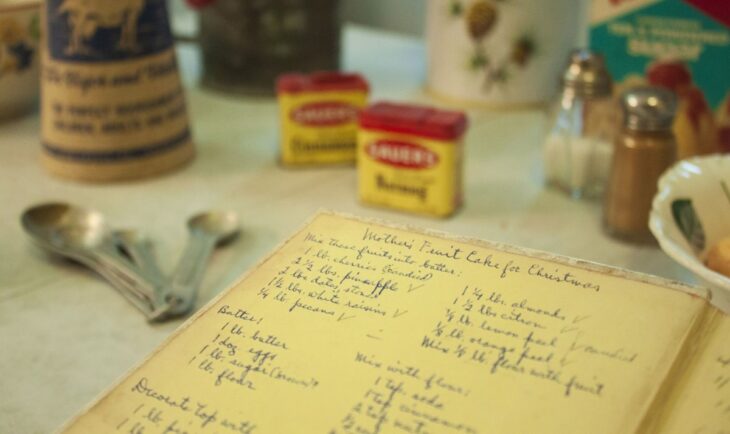 SAUER'S
SAUER'S
Nutmeg
Mother's Fruit Cake for Christmas
Mix these fruits into batter:
1 lb. cherries (candied)
2 1/2 lbs. pineapple ✓
2 lbs. dates, stored
1 1/2 lbs. white raisins ✓
1/4 lb. pecans ✓
1 1/4 lbs. almonds ✓
1 1/2 lbs citron ✓
1/8 lb. lemon peel
1/8 lb. orange peel ✓ candied
Mix 1/2 lb. flour with fruit
Batter:
1 lb. butter
1 doz. eggs
1 lb. sugar (brown)
1 lb. flour
Mix with flour:
1 tsp. soda
1 tsp cinnamon
2 tsp nutmeg
Decorate top with
1 lb.